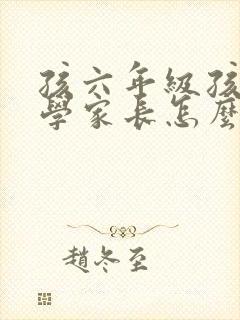 孩六年級孩
學家長怎麼
趙冬至